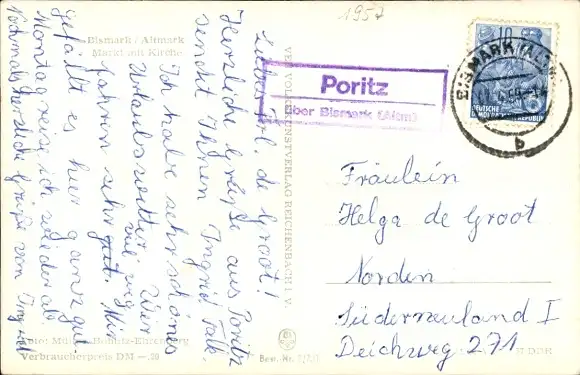 1957
Bismark / Altmark
Markt mit Kirche
Liebes Frl. de Groot!
Herzliche Grüße aus Poritz
sendet Ihnen Ingrid Falk.
Ich habe sehr schönes
Urlaubswetter. Wir
fahren sehr viel weg
Mir
gefällt es hier ganz gut.
Montag reise ich wieder ab.
Nochmals herzliche Grüße von Ingrid
Foto:
Verbraucherpreis DM
VERLAG VOLKSKUNSTVERLAG REICHENBACH I. V.
Poritz
über Bismark (Altm)
BISMARK (ALTM)
b
10
DEUTSCHE
DEMOKRATISCHE REPUBLIK
Fräulein
Helga de Groot
Norden
Süderneuland I
Deichweg 271